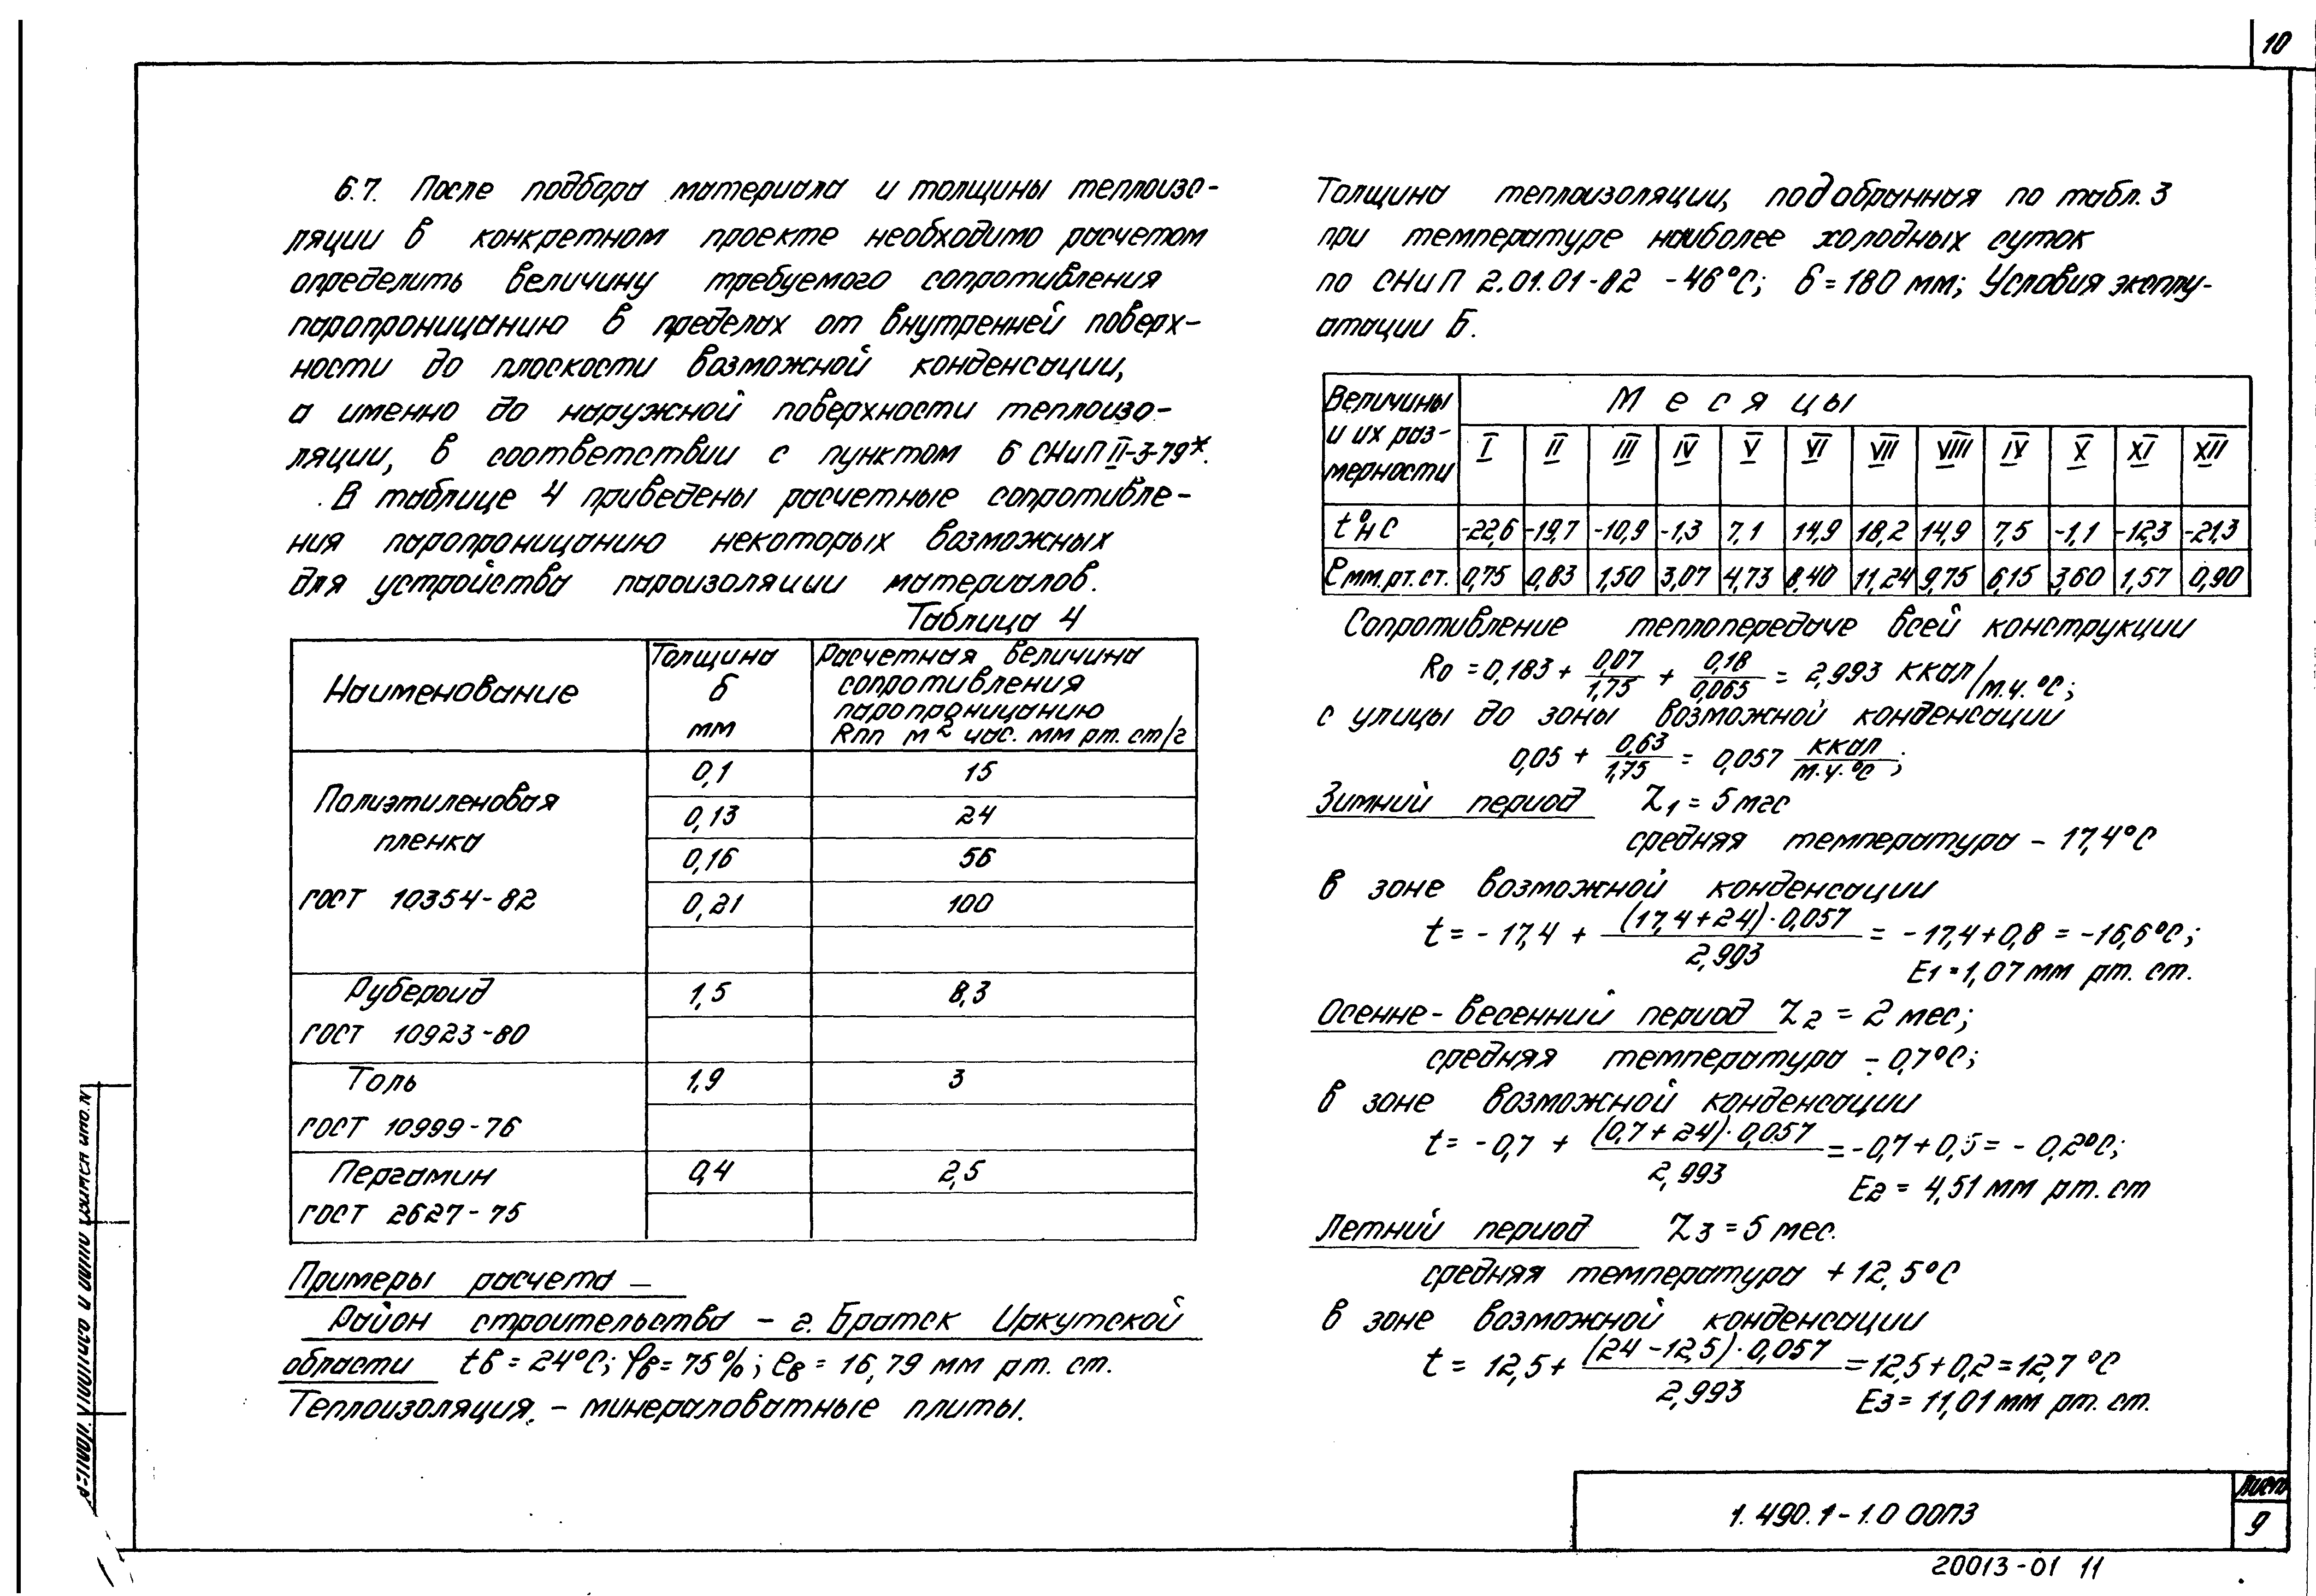 10
6.7. После подбора материала и толщины теплоизо-
ляции в конкретном проекте необходимо расчетом
определить величину требуемого сопротивления
паропроницанию в пределах от внутренней поверх-
ности до плоскости возможной конденсации,
а именно до наружной поверхности теплоизо-
ляции, в соответствии с пунктом 6 СНиП II-3-79*.
В таблице 4 приведены расчетные сопротивле-
ния паропроницанию некоторых возможных
для устройства пароизоляции материалов.
Таблица 4
Наименование | Толщина δ мм | Расчетная величина сопротивления паропроницанию Rпп м² час. мм рт. ст/г
Полиэтиленовая пленка ГОСТ 10354-82 | 0,1 | 15
0,13 | 24
0,16 | 56
0,21 | 100
Рубероид ГОСТ 10923-80 | 1,5 | 8,3
Толь ГОСТ 10999-76 | 1,9 | 3
Пергамин ГОСТ 2627-75 | 0,4 | 2,5
Примеры расчета –
Район строительства – г. Братск Иркутской
области tв = 24°C; φв = 75%; eв = 16,79 мм рт. ст.
Теплоизоляция – минераловатные плиты.
Толщина теплоизоляции, подобранная по табл. 3
при температуре наиболее холодных суток
по СНиП 2.01.01-82 -46°C; δ = 180 мм; Условия эксплу-
атации Б.
Величины и их раз- мерности | Месяцы
I | II | III | IV | V | VI | VII | VIII | IX | X | XI | XII
t°н C | -22,6 | -19,7 | -10,9 | -1,3 | 7,1 | 14,9 | 18,2 | 14,9 | 7,5 | -1,1 | -12,3 | -21,3
е мм.рт.ст. | 0,75 | 0,83 | 1,50 | 3,07 | 4,73 | 8,40 | 11,24 | 9,75 | 6,15 | 3,60 | 1,57 | 0,90
Сопротивление теплопередаче всей конструкции
Ro = 0,183 + 0,07/1,75 + 0,18/0,065 = 2,993 ккал/м.ч.°C;
с улицы до зоны возможной конденсации
0,05 + 0,63/1,75 = 0,057 ккал/м.ч.°C;
Зимний период Z1 = 5 мес
средняя температура – 17,4°C
в зоне возможной конденсации
t = - 17,4 + (17,4 + 24) · 0,057/2,993 = -17,4 + 0,8 = -16,6°C;
E1 = 1,07 мм рт. ст.
Осенне-весенний период Z2 = 2 мес;
средняя температура - 0,7°C;
в зоне возможной конденсации
t = - 0,7 + (0,7 + 24) · 0,057/2,993 = -0,7 + 0,5 = - 0,2°C;
E2 = 4,51 мм рт. ст
Летний период Z3 = 5 мес.
средняя температура + 12,5°C
в зоне возможной конденсации
t = 12,5 + (24 - 12,5) · 0,057/2,993 = 12,5 + 0,2 = 12,7 °C
E3 = 11,01 мм рт. ст.
1.490.1-1.0 00ПЗ
Лист
9
20013-01 11